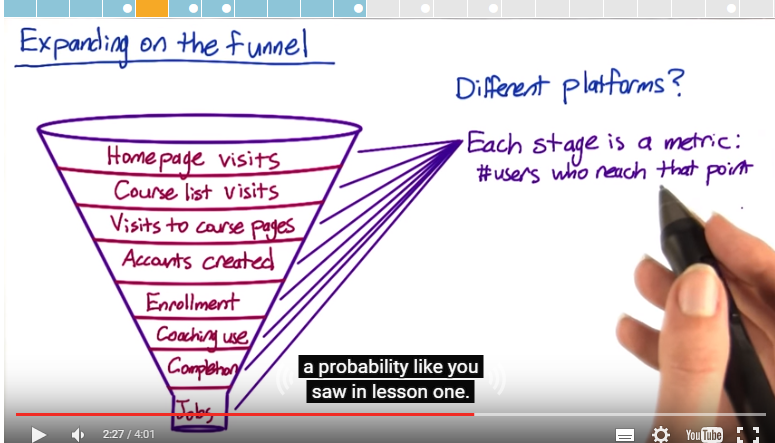 Expanding on the funnel
Different platforms?
Homepage visits
Course list visits
Visits to course pages
Accounts created
Enrollment
Coaching use
Completion
Jobs
Each stage is a metric:
#users who reach that point
a probability like you
saw in lesson one.
2:27 / 4:01
YouTube